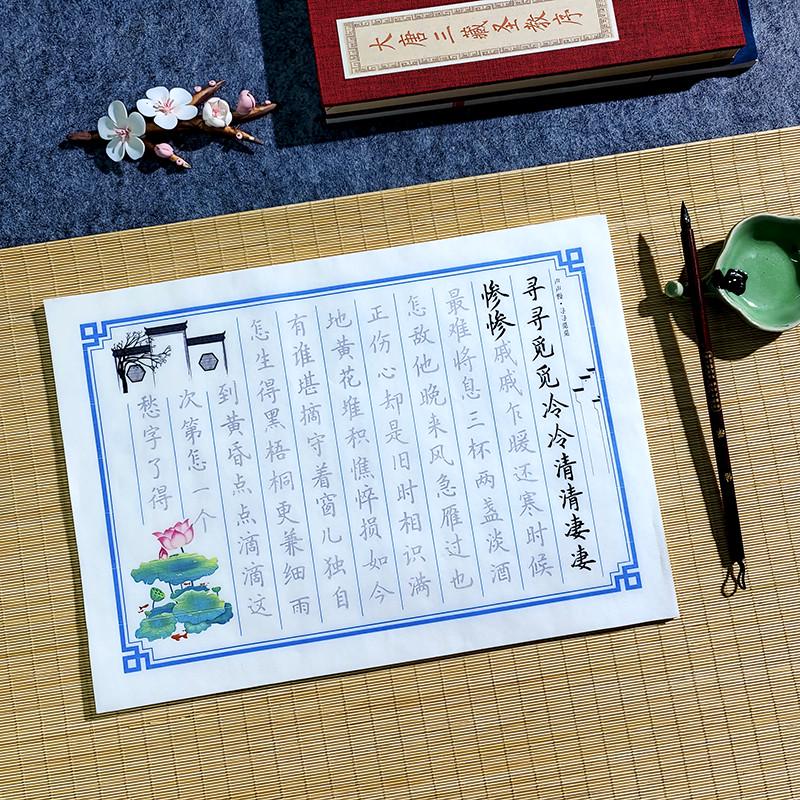 大唐三藏圣教序
声声慢·寻寻觅觅
寻寻觅觅冷冷清清凄凄
惨惨戚戚乍暖还寒时候
最难将息三杯两盏淡酒
怎敌他晚来风急雁过也
正伤心却是旧时相识满
地黄花堆积憔悴损如今
有谁堪摘守着窗儿独自
怎生得黑梧桐更兼细雨
到黄昏点点滴滴这
次第怎一个
愁字了得